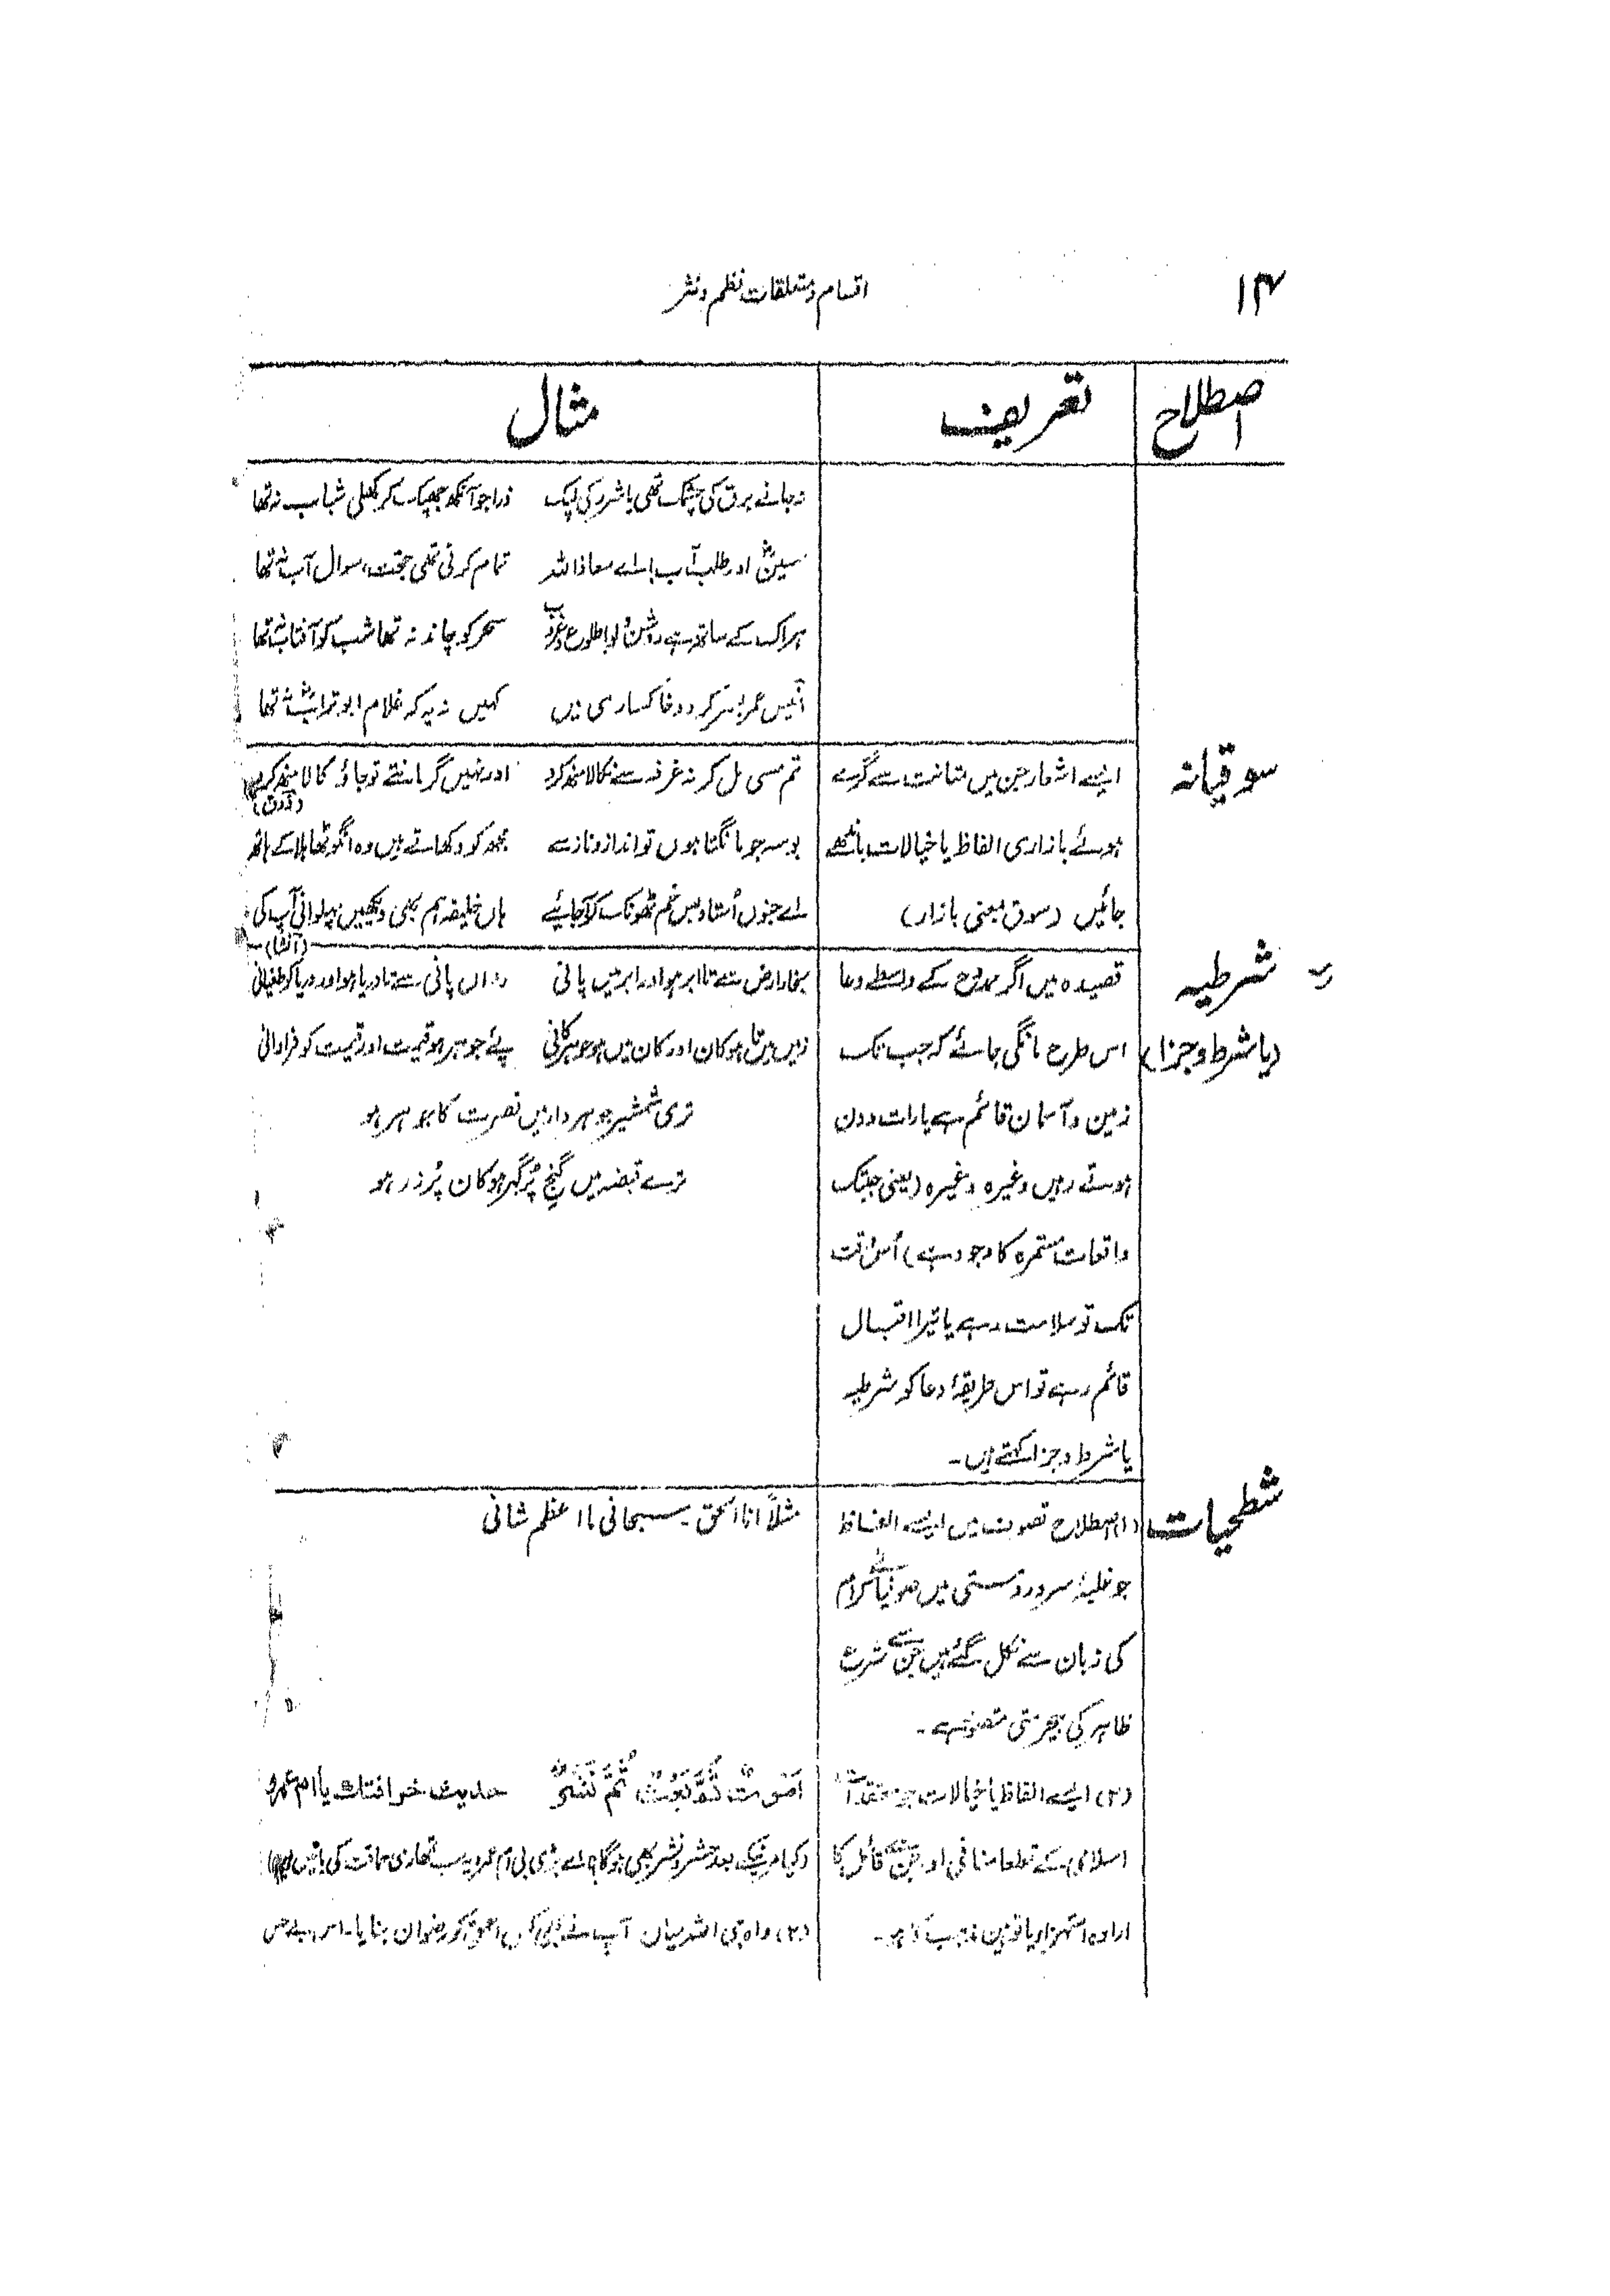 ۱۴
اقسام و متعلقات نظم و نثر
اصطلاح
تعریف
مثال
نہ جانے برق کی چشمک تھی یا شرر کی لپک ذرا جو آنکھ جھپک کر کھلی شباب نہ تھا
حسین اور طلب آب اے معاذ اللہ تمام کرنی تھی حجت، سوال آب نہ تھا
ہر اک کے ساتھ ہے روشندلو طلوع و غروب سحر کو چاند نہ تھا شب کو آفتاب نہ تھا
انیس عمر بسر کر دو خاکساری میں کہیں نہ یہ کہ غلام ابوتراب نہ تھا
سوقیانہ
ایسے اشعار جن میں متانت سے گرے
ہوئے بازاری الفاظ یا خیالات باندھے
جائیں (سوق بمعنی بازار)
تم مسی مل کر نہ غرفہ سے نکالا منہ کرو اور نہیں گر مانتے تو جاؤ کالا منہ کرو
(ذوق)
بوسہ جو مانگتا ہوں تو انداز و ناز سے مجھ کو دکھاتے ہیں وہ انگوٹھا ہلا کے ہاتھ
اے جنوں استاد بس خم ٹھونک کر آ جائیے ہاں خلیفہ ہم بھی دیکھیں پہلوانی آپ کی
(انشا)
شرطیہ
(یا شرط و جزا)
قصیدہ میں اگر ممدوح کے واسطے دعا
اس طرح مانگی جائے کہ جب تک
زمین و آسمان قائم ہے یا رات و دن
ہوتے رہیں وغیرہ وغیرہ (یعنی جبتک
واقعات مستمرہ کا وجود ہے) اُس وقت
تک تو سلامت رہے یا تیرا اقبال
قائم رہے تو اس طریقۂ دعا کو شرطیہ
یا شرط و جزا کہتے ہیں۔
بخار ارض سے تا ابر ہو اور ابر میں پانی رواں پانی سے تا دریا ہو اور دریا کو طغیانی
زمیں میں تا ہو کان اور کان میں ہو جوہر کانی پئے جوہر ہو قیمت اور قیمت کو فراوانی
تری شمشیر جوہر دار میں نصرت کا جوہر ہو
ترے قبضہ میں گنج پُر گہر ہو کان پُر زر ہو
شطحیات
(۱) اصطلاح تصوف میں ایسے الفاظ
جو غلبۂ سرور و مستی میں صوفیائے کرام
کی زبان سے نکل گئے ہیں جن سے شرع
ظاہر کی بیحرمتی متصور ہے۔
مثلاً انا الحق۔ سبحانی ما اعظم شانی
(۲) ایسے الفاظ یا خیالات جو معتقدات
اسلامی کے قطعا منافی اور جن سے قائل کا
ارادہ استہزا یا توہین مذہب کا ہو۔
اَمَوتٌ ثُمَّ بَعثٌ ثُمَّ نَشرٌ حدیث خرافتك یا ام عمرو
(کیا مرنیکے بعد حشر و نشر بھی ہوگا اے بڑی بی ام عمرو یہ سب تمھاری حماقت کی باتیں ہیں)
(۲) واہ جی اللہ میاں آپ نے بھی کس احمق کو رضوان بنایا۔